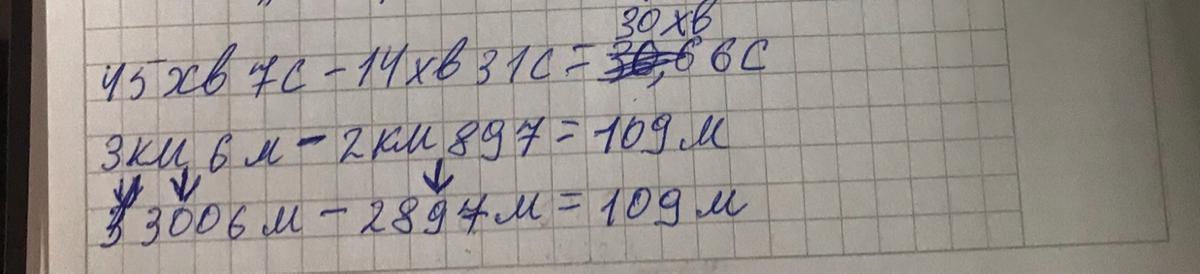 45хв 7с - 14хв 31с = 30хв 6с
3км 6м - 2км 897 = 109м
3006м - 2897м = 109м